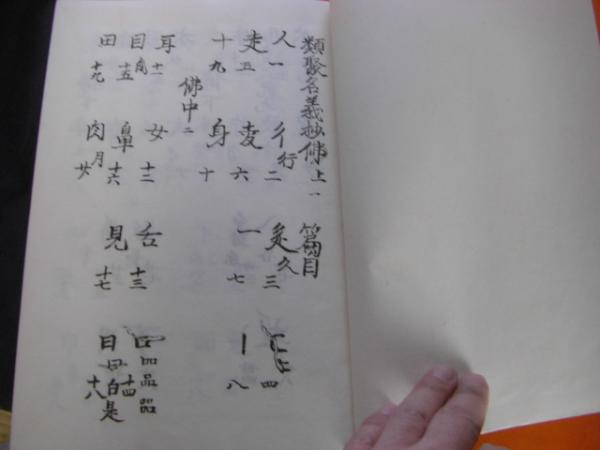 類聚名義抄佛上一 篇目
人一 彳行二 三 匚四
走五 麦六 一七 丨八
十九 身十
佛中二
耳十一 女十二 舌十三 口品品品十四
目十五 鼻十六 見十七 日白是十八
田十九 肉月廿